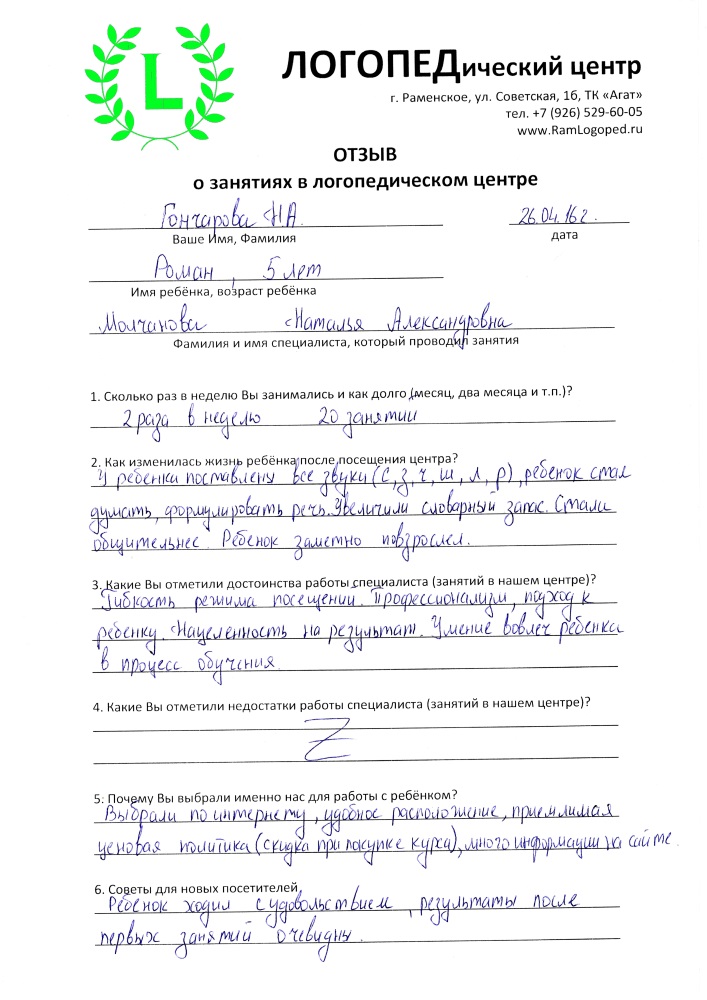 L
ЛОГОПЕДический центр
г. Раменское, ул. Советская, 1б, ТК «Агат»
тел. +7 (926) 529-60-05
www.RamLogoped.ru
ОТЗЫВ
о занятиях в логопедическом центре
Гончарова Н.А. 26.04.16г.
Ваше Имя, Фамилия дата
Роман, 5 лет
Имя ребёнка, возраст ребёнка
Молчанова Наталья Александровна
Фамилия и имя специалиста, который проводил занятия
1. Сколько раз в неделю Вы занимались и как долго (месяц, два месяца и т.п.)?
2 раза в неделю 20 занятии
2. Как изменилась жизнь ребёнка после посещения центра?
У ребенка поставлены все звуки (с, з, ч, ш, л, р), ребенок стал
думать, формулировать речь. Увеличили словарный запас. Стали
общительнее. Ребенок заметно повзрослел.
3. Какие Вы отметили достоинства работы специалиста (занятий в нашем центре)?
Гибкость режима посещении. Профессионализм, подход к
ребенку. Нацеленность на результат. Умение вовлеч ребенка
в процесс обучения.
4. Какие Вы отметили недостатки работы специалиста (занятий в нашем центре)?
Z
5. Почему Вы выбрали именно нас для работы с ребёнком?
Выбрали по интернету, удобное расположение, приемлимая
ценовая политика (скидка при покупке курса), много информации на сайте.
6. Советы для новых посетителей
Ребенок ходил с удовольствием, результаты после
первых занятий очевидны.